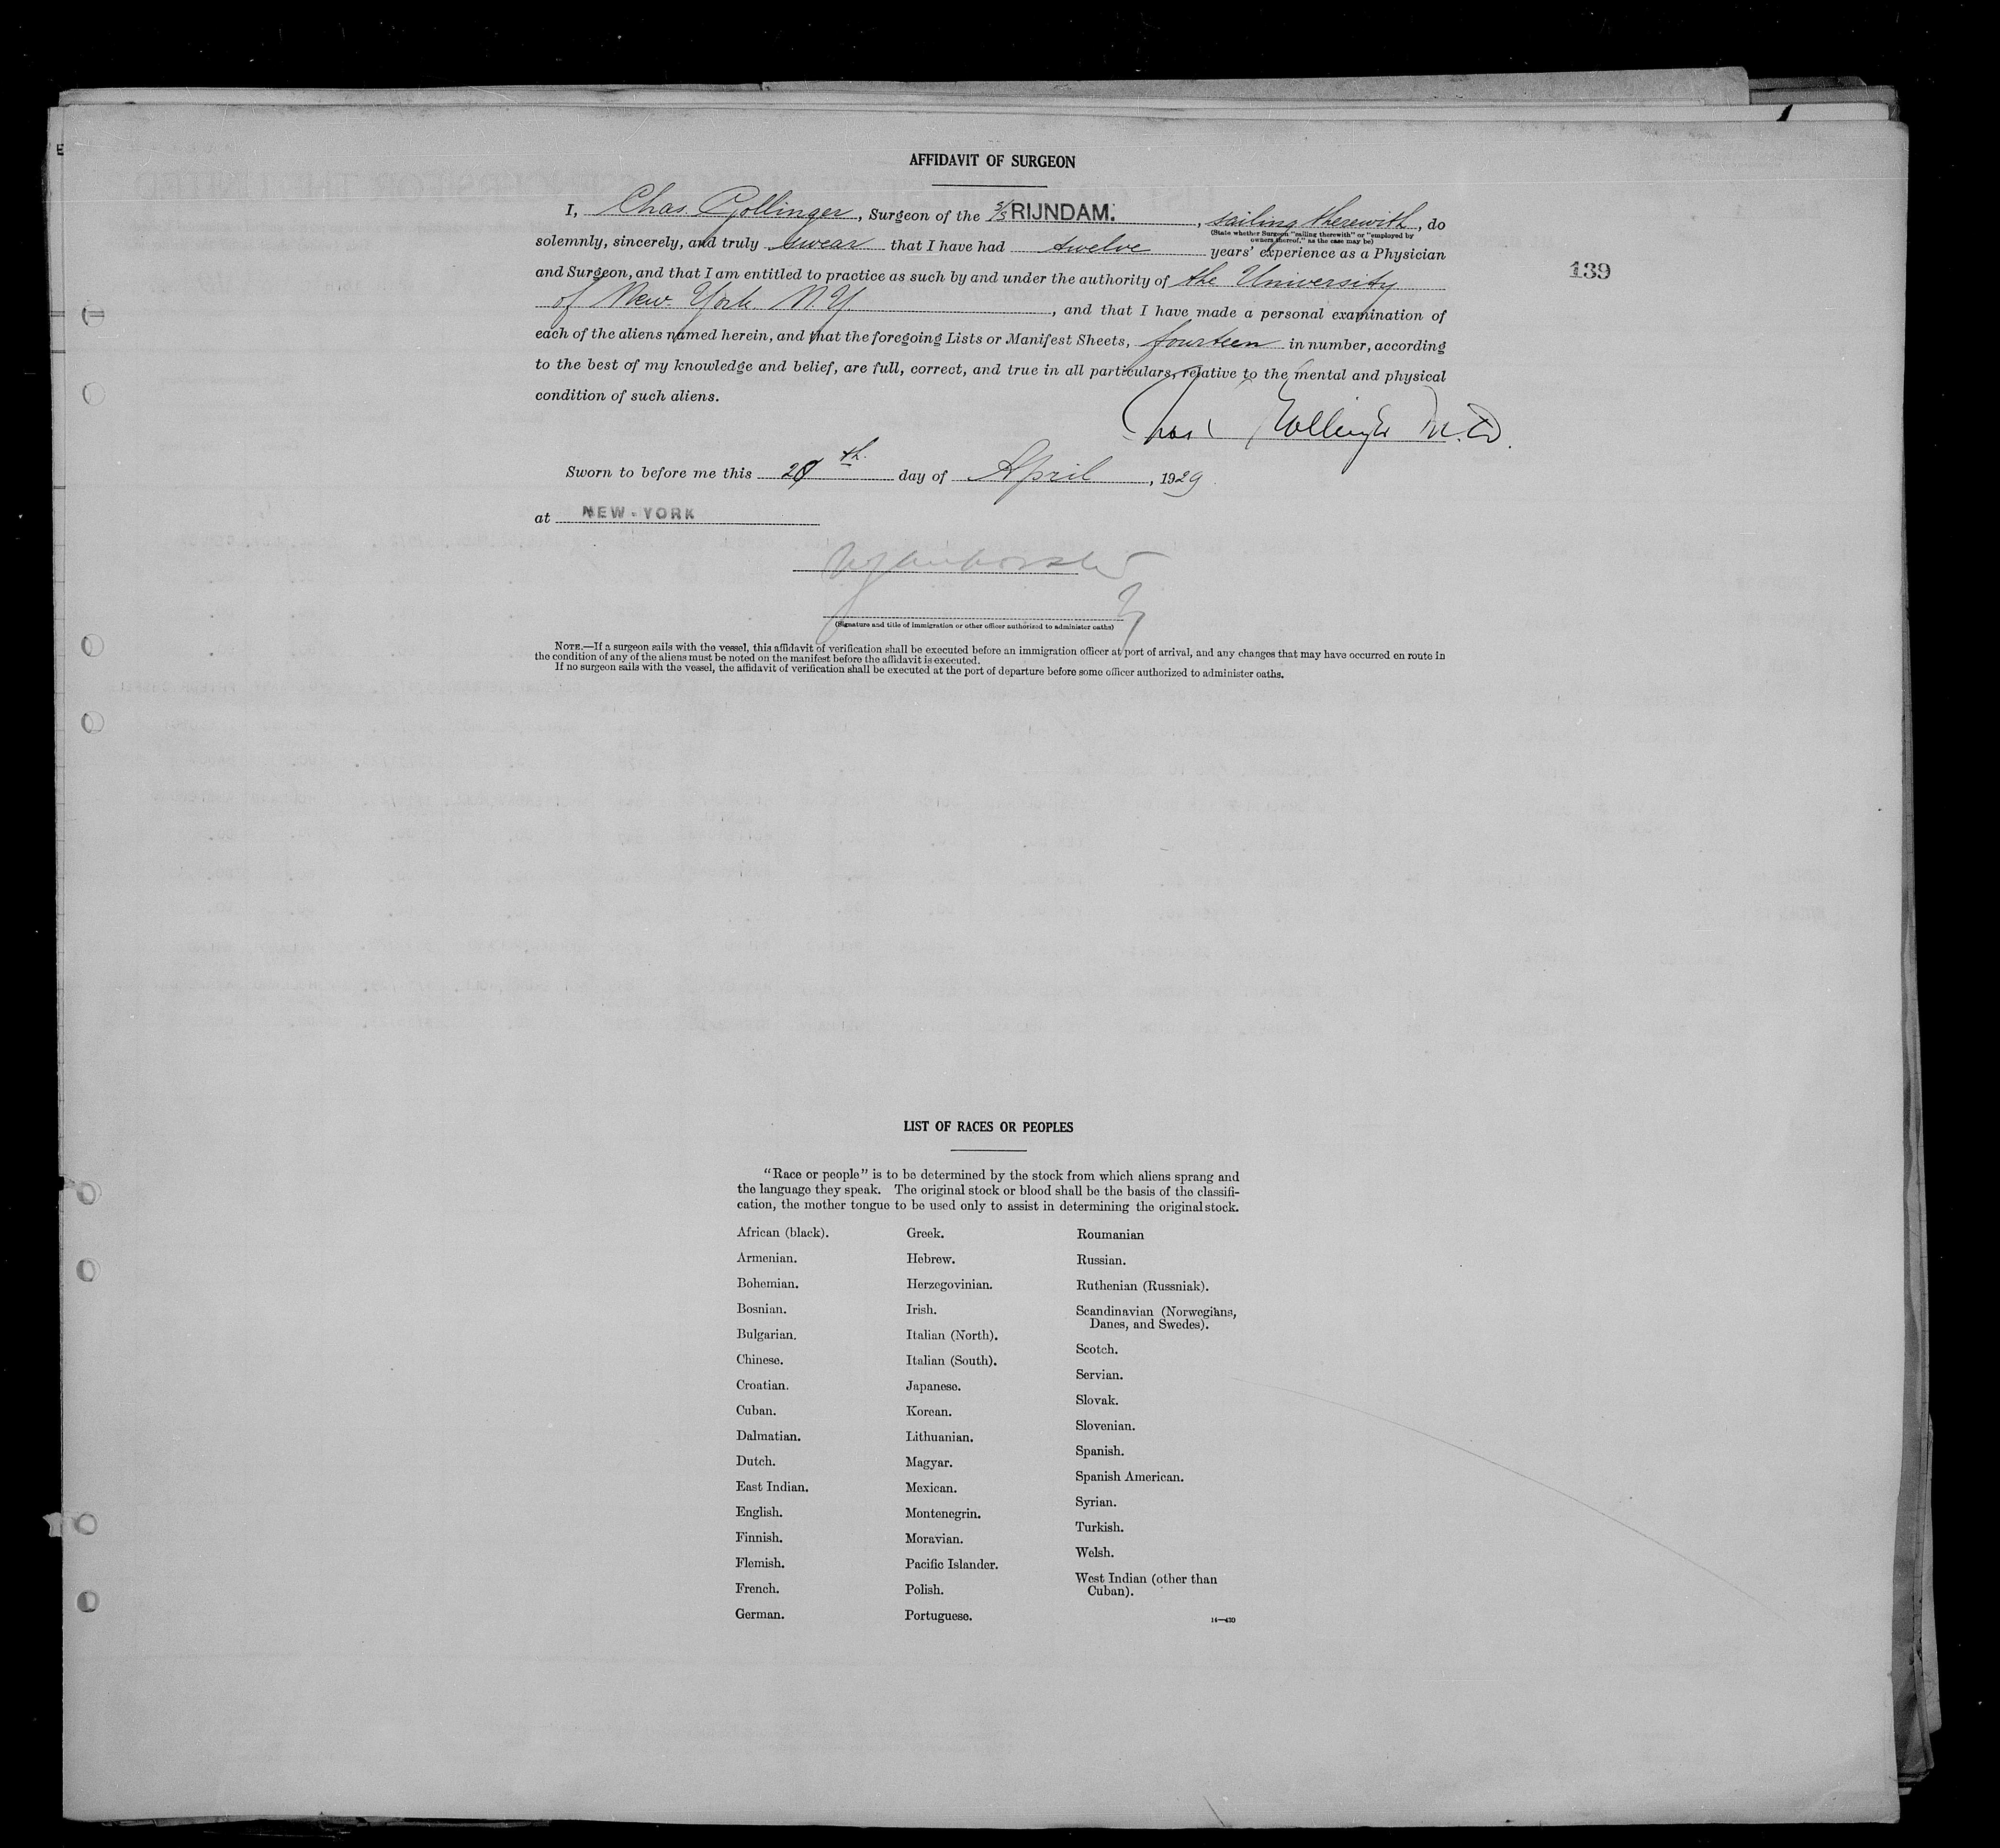 AFFIDAVIT OF SURGEON
I, Chas. Gollinger, Surgeon of the S/S RIJNDAM. , sailing therewith, do
(State whether Surgeon "sailing therewith" or "employed by
owners thereof," as the case may be)
solemnly, sincerely, and truly swear that I have had twelve years' experience as a Physician
139
and Surgeon, and that I am entitled to practice as such by and under the authority of the University
of New York N.Y. , and that I have made a personal examination of
each of the aliens named herein, and that the foregoing Lists or Manifest Sheets, fourteen in number, according
to the best of my knowledge and belief, are full, correct, and true in all particulars, relative to the mental and physical
condition of such aliens.
Chas. Gollinger M.D.
Sworn to before me this th. day of April, 1929
at NEW-YORK
(Signature and title of immigration or other officer authorized to administer oaths)
NOTE.—If a surgeon sails with the vessel, this affidavit of verification shall be executed before an immigration officer at port of arrival, and any changes that may have occurred en route in
the condition of any of the aliens must be noted on the manifest before the affidavit is executed.
If no surgeon sails with the vessel, the affidavit of verification shall be executed at the port of departure before some officer authorized to administer oaths.
LIST OF RACES OR PEOPLES
"Race or people" is to be determined by the stock from which aliens sprang and
the language they speak. The original stock or blood shall be the basis of the classifi-
cation, the mother tongue to be used only to assist in determining the original stock.
African (black).
Armenian.
Bohemian.
Bosnian.
Bulgarian.
Chinese.
Croatian.
Cuban.
Dalmatian.
Dutch.
East Indian.
English.
Finnish.
Flemish.
French.
German.
Greek.
Hebrew.
Herzegovinian.
Irish.
Italian (North).
Italian (South).
Japanese.
Korean.
Lithuanian.
Magyar.
Mexican.
Montenegrin.
Moravian.
Pacific Islander.
Polish.
Portuguese.
Roumanian
Russian.
Ruthenian (Russniak).
Scandinavian (Norwegians,
Danes, and Swedes).
Scotch.
Servian.
Slovak.
Slovenian.
Spanish.
Spanish American.
Syrian.
Turkish.
Welsh.
West Indian (other than
Cuban).
14—430